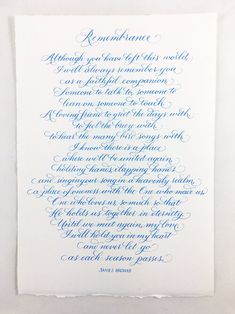 Remembrance
Although you have left this world,
I will always remember you
as a faithful companion
Someone to talk to, someone to
lean on, someone to touch
A loving friend to greet the days with
to feel the buoy with
to hear the many bird songs with
I know there is a place
where we'll be united again,
holding hands, clapping hands
and singing our song in a heavenly realm
a place of oneness with the One who made us
One who loves us, so much so that
He holds us together in eternity.
Until we met again, my love
I will hold you in my heart
and never let go
as each season passes.